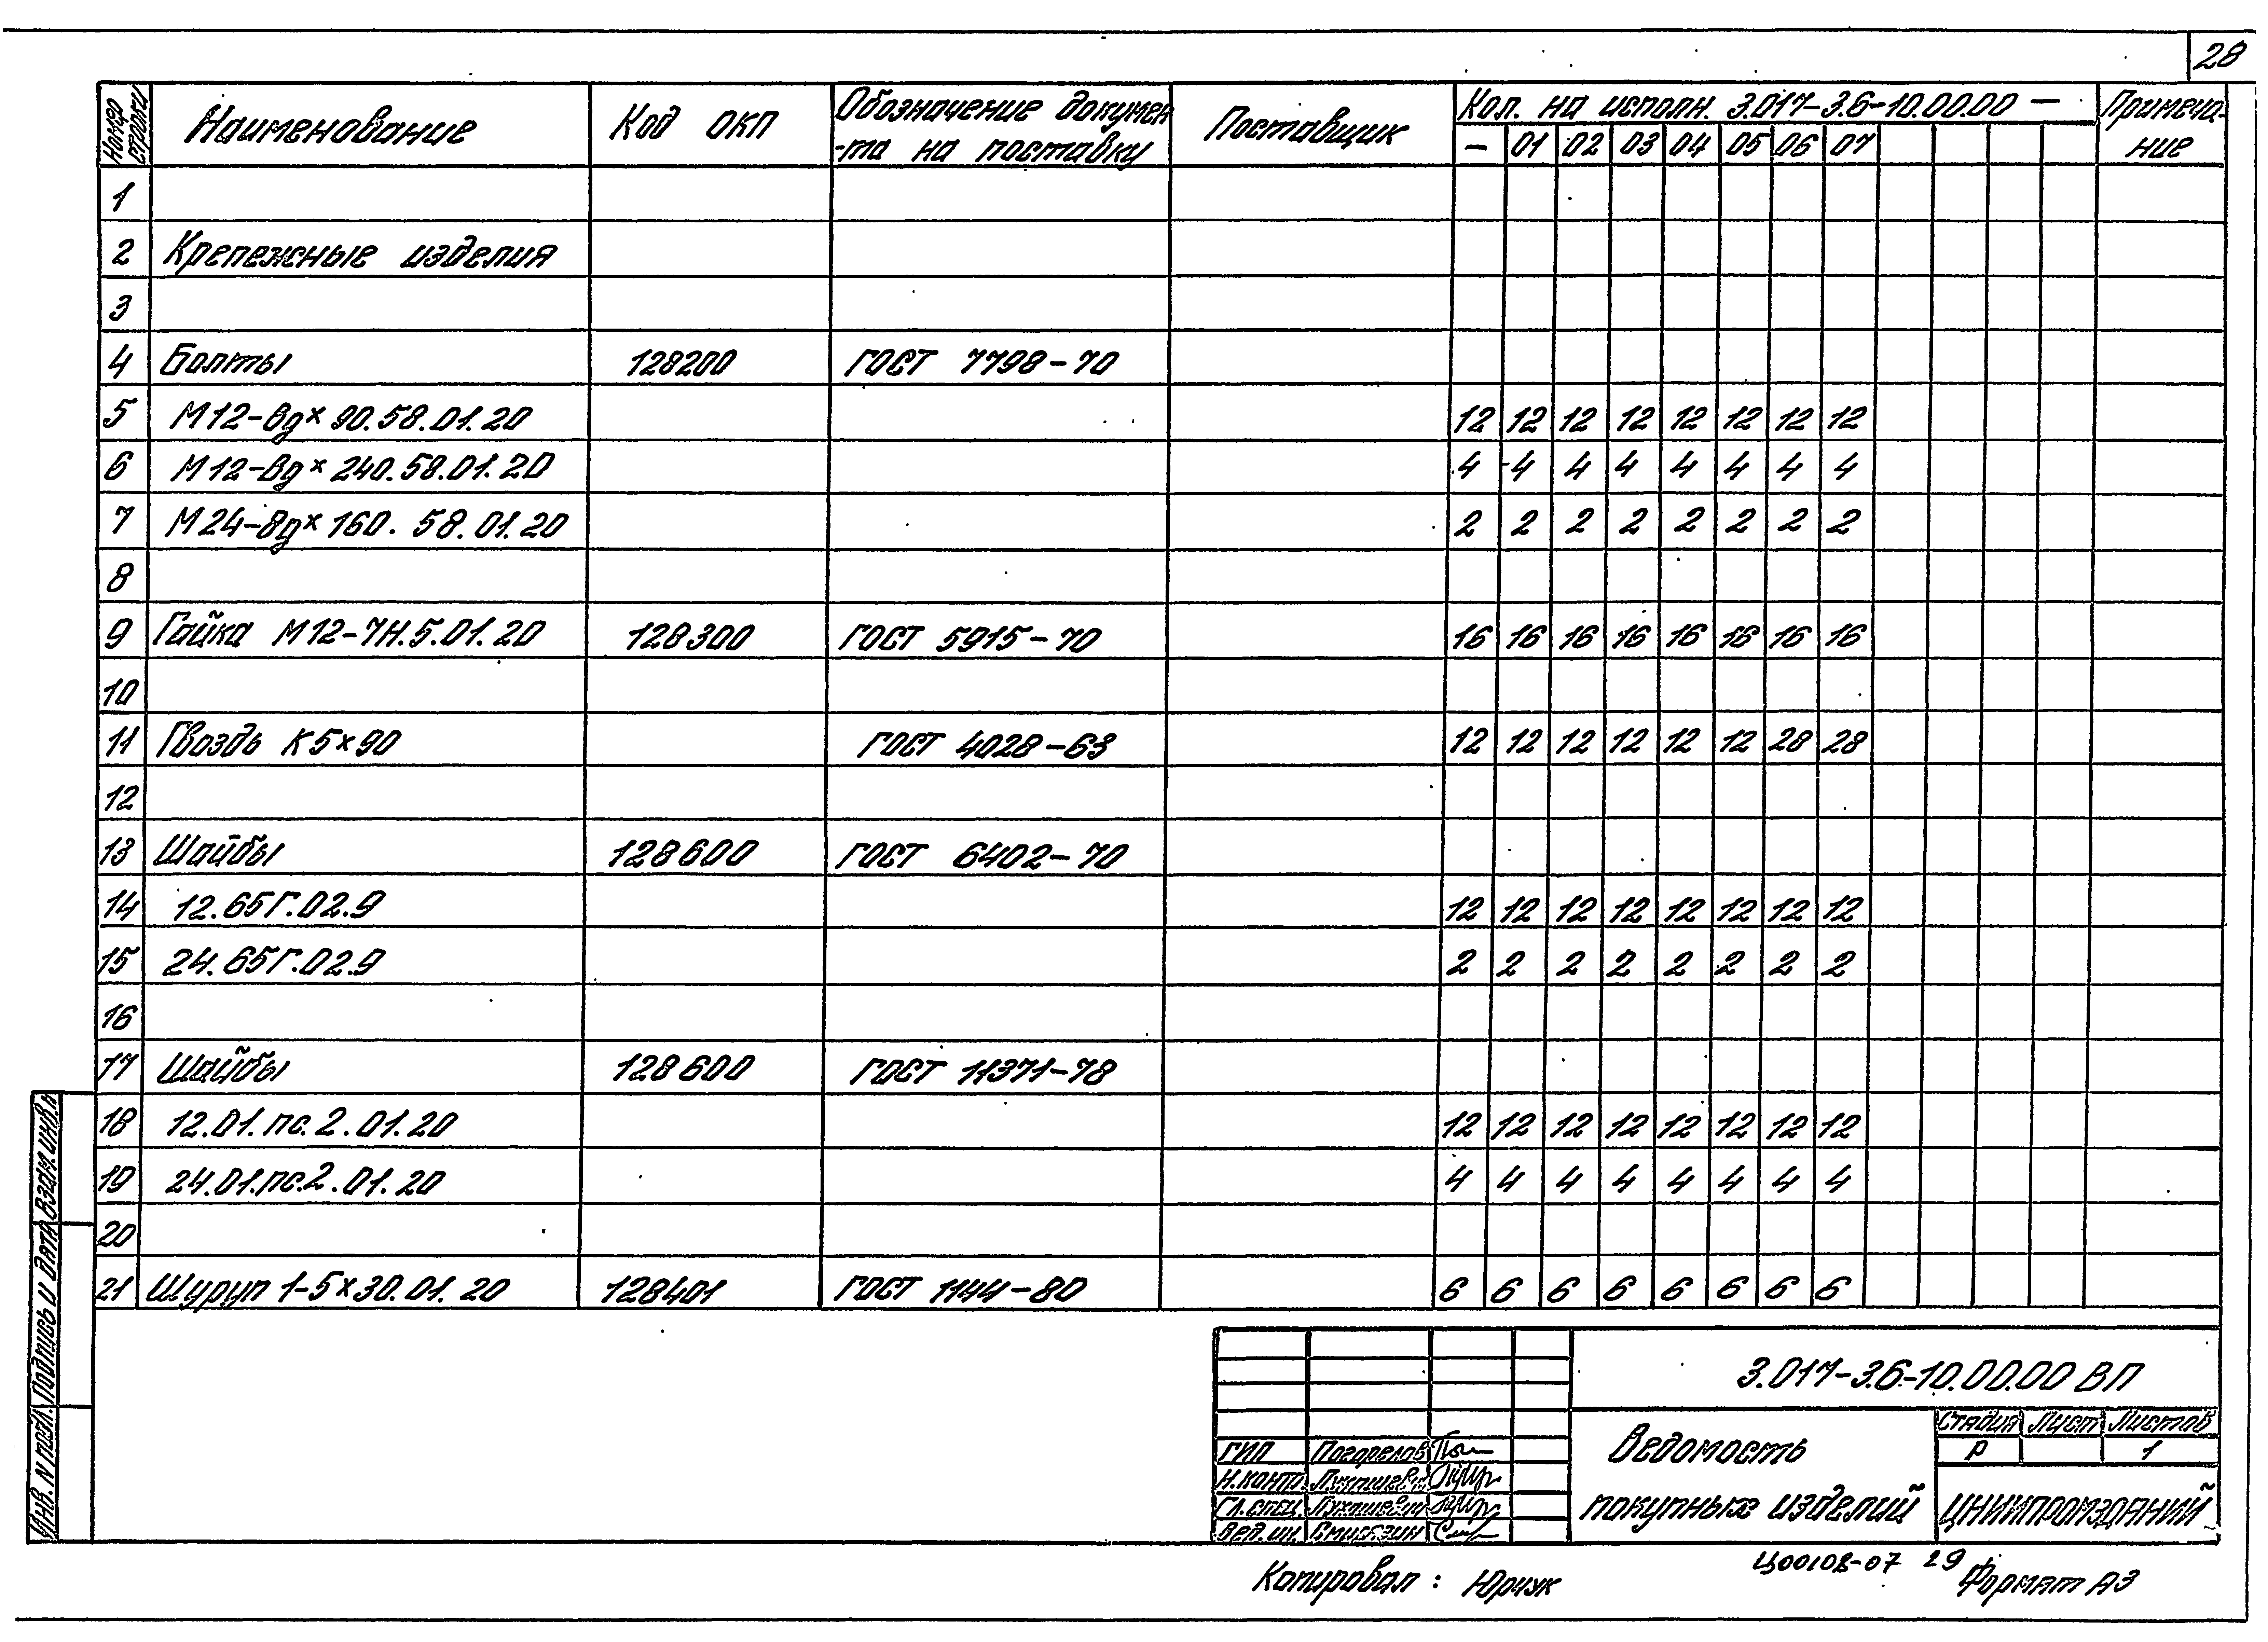 28
Номер строки Наименование Код ОКП Обозначение докумен-та на поставку Поставщик Кол. на исполн. 3.017-3.6-10.00.00 — Примеча-ние
— 01 02 03 04 05 06 07
1
2 Крепежные изделия
3
4 Болты 128200 ГОСТ 7798-70
5 М12-8g×90.58.01.20 12 12 12 12 12 12 12 12
6 М12-8g×240.58.01.20 4 4 4 4 4 4 4 4
7 М24-8g×160.58.01.20 2 2 2 2 2 2 2 2
8
9 Гайка М12-7Н.5.01.20 128300 ГОСТ 5915-70 16 16 16 16 16 16 16 16
10
11 Гвоздь К5×90 ГОСТ 4028-63 12 12 12 12 12 12 28 28
12
13 Шайбы 128600 ГОСТ 6402-70
14 12.65Г.02.9 12 12 12 12 12 12 12 12
15 24.65Г.02.9 2 2 2 2 2 2 2 2
16
17 Шайбы 128600 ГОСТ 11371-78
18 12.01.пс.2.01.20 12 12 12 12 12 12 12 12
19 24.01.пс.2.01.20 4 4 4 4 4 4 4 4
20
21 Шуруп 1-5×30.01.20 128401 ГОСТ 1144-80 6 6 6 6 6 6 6 6
Взам.инв.№
Подпись и дата
Инв.№ подл.
3.017-3.6-10.00.00 ВП
Ведомость
покупных изделий
Стадия Лист Листов
Р 1
ЦНИИПРОМЗДАНИЙ
ГИП Погорелов
Н.контр.
Гл.спец.
Вед.ин.
Копировал: Юрчук
Ц00108-07 29
Формат А3